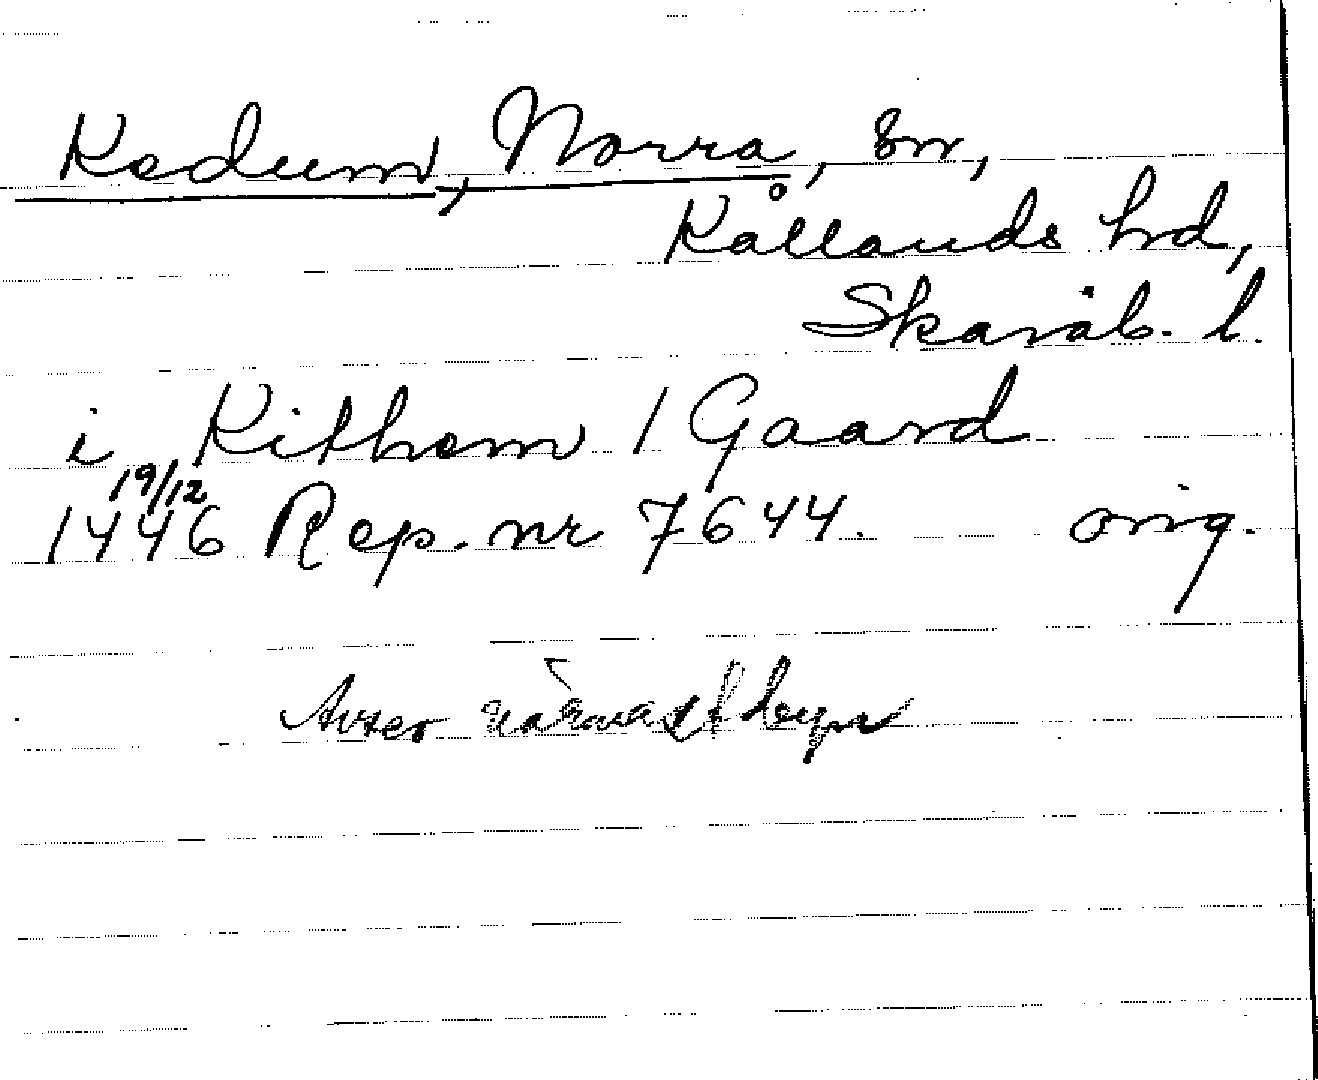 Kedum, Norra, sn,
Kållands hd,
Skarab. l.
i Kithem 1 Gaard
19/12
1446 Rep. nr 7644. orig.
Avser